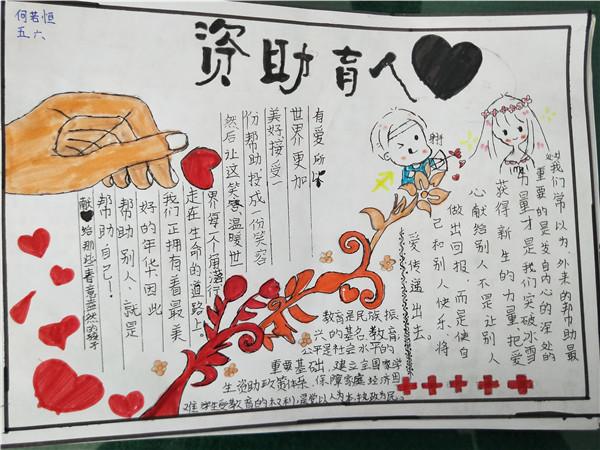 何若恒
五六
资助育人
有爱所以
世界更加
美好,接受一
份帮助投成一份笑容
然后让这笑容温暖世
界每一个角落行
走在生命的道路上。
我们正拥有着最美
好的年华,因此
帮助别人、就是
帮助自己!
献给那些春意盎然的孩子
我们常以为,外来的帮助最
重要的是发自内心的深处的
力量才是我们突破冰雪
获得新生的力量把爱
心献给别人不是让别人
做出回报,而是使自
己和别人快乐,将
爱传递出去。
教育是民族振
兴的基石,教育
公平是社会水平的
重要基础,建立全国家学
生资助政策体系,保障家庭经济困
难学生受教育的权利,是党以人为本执政为民。